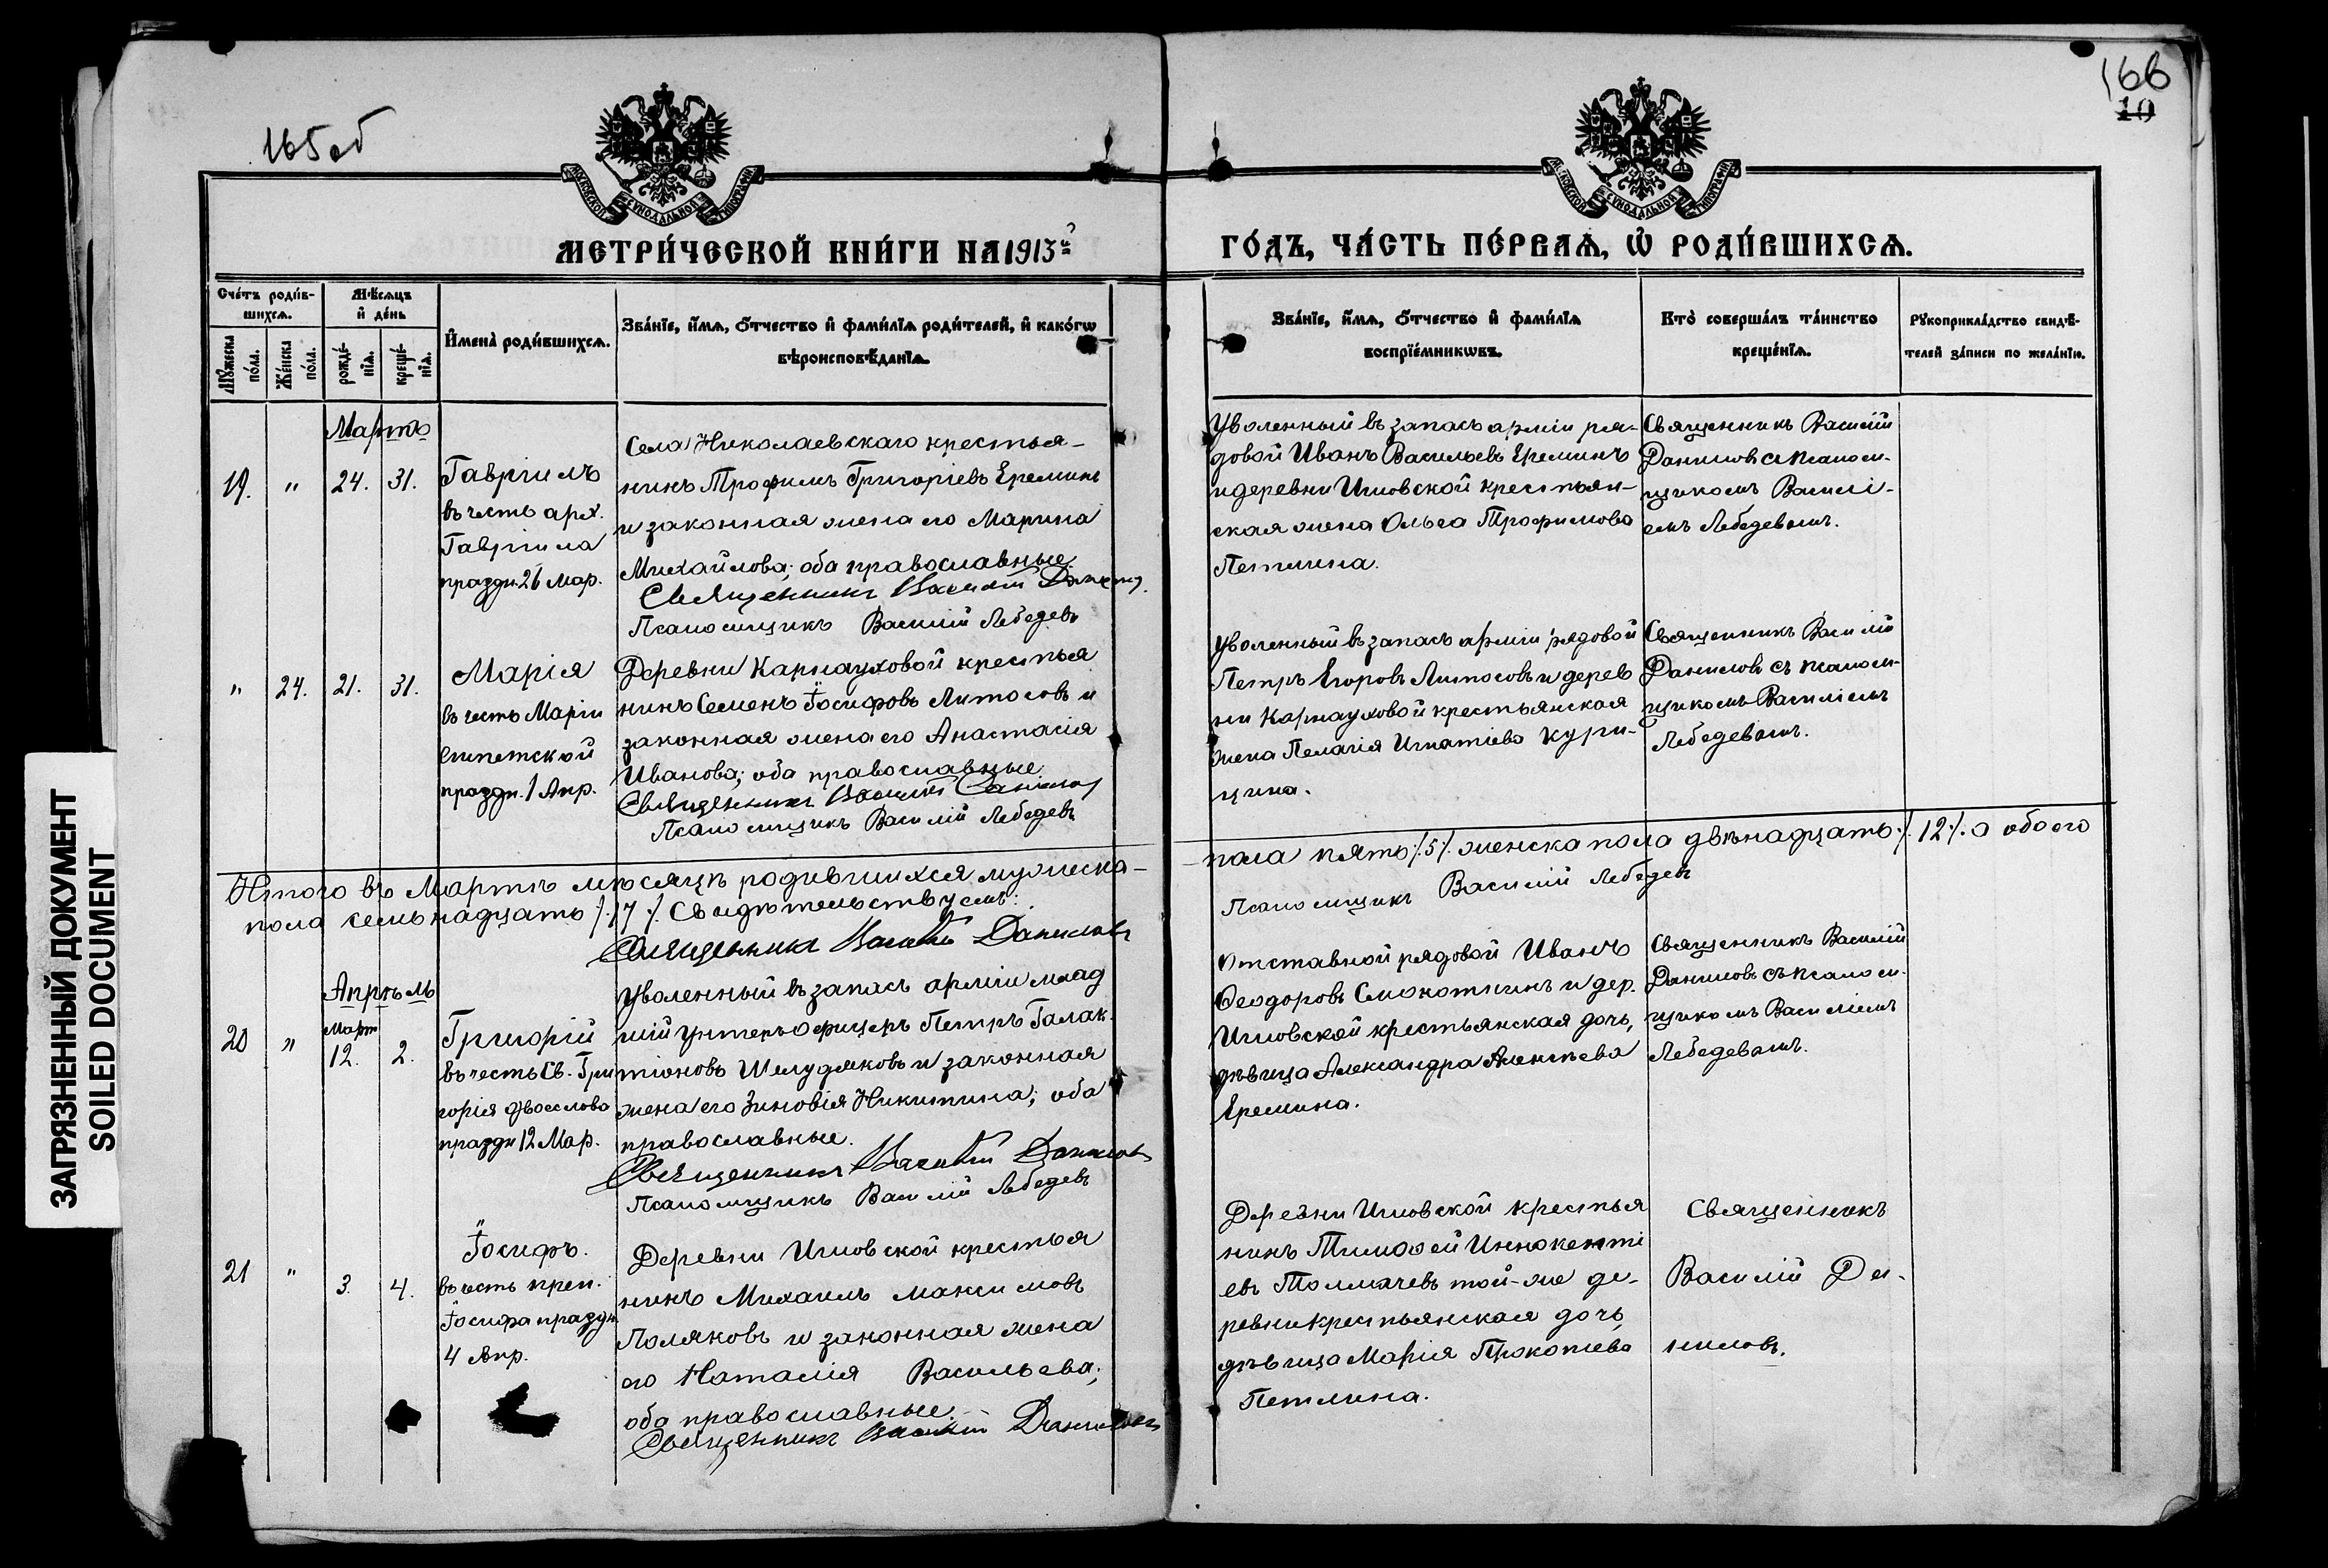 165об
166
10
МОСКОВСКОЙ СѴНОДАЛЬНОЙ ТИПОГРАФІИ
МОСКОВСКОЙ СѴНОДАЛЬНОЙ ТИПОГРАФІИ
МЕТРИ́ЧЕСКОЙ КНИ́ГИ НА 1913й
ГО́ДЪ, ЧА́СТЬ ПЕ́РВАѦ, Ѡ҆ РОДИ́ВШИХСѦ.
Сче́тъ роди́в-
шихсѧ.
Мѣ́сѧцъ
и҆ де́нь
Мꙋ́жеска
по́ла.
Же́нска
по́ла.
рожде́-
нїѧ.
креще́-
нїѧ.
И҆мена̀ роди́вшихсѧ.
Зва́нїе, и҆́мѧ, ѻ҆́тчество и҆ фами́лїѧ роди́телей, и҆ како́гѡ
вѣроисповѣ́данїѧ.
Зва́нїе, и҆́мѧ, ѻ҆́тчество и҆ фами́лїѧ
воспрїе́мникѡвъ.
Кто̀ соверша́лъ та́инство
креще́нїѧ.
Рꙋкоприкла́дство свидѣ́-
телей за́писи по жела́нїю.
Мартъ
19. " 24. 31.
Гавріилъ
въ честь арх.
Гавріила
праздн. 26 Мар.
Села Николаевскаго крестья-
нинъ Трофимъ Григоріевъ Ереминъ
и законная жена его Марина
Михайлова; оба православные.
Священникъ Василій Данилов
Псаломщикъ Василій Лебедевъ
Уволенный въ запасъ арміи ря-
довой Иванъ Васильевъ Ереминъ
и деревни Игловской крестьян-
ская жена Ольга Трофимова
Петлина.
Священникъ Василій
Даниловъ съ псалом-
щикомъ Василі-
емъ Лебедевымъ.
" 24. 21. 31.
Марія
въ честь Маріи
египетской
праздн. 1 Апр.
Деревни Карнауховой крестья
нинъ Семенъ Іосифовъ Литосовъ и
законная жена его Анастасія
Иванова; оба православные.
Священникъ Василій Данилов
Псаломщикъ Василій Лебедевъ
Уволенный въ запасъ арміи рядовой
Петръ Егоровъ Литосовъ и дерев
ни Карнауховой крестьянская
жена Пелагія Игнатіева Кури-
цина.
Священникъ Василій
Даниловъ съ псалом-
щикомъ Василіемъ
Лебедевымъ.
Итого въ Мартѣ мѣсяцѣ родившихся мужеска-
пола семьнадцать /.17./ Свидѣтельствуемъ:
Священникъ Василій Даниловъ
пола пять /.5./. женска пола двѣнадцать /. 12./. а обоего
Псаломщикъ Василій Лебедевъ
Апрѣль
20 " Март 12. 2.
Григорій
въ честь Св. Гри
горія двоеслова
праздн 12 Мар.
Уволенный въ запасъ арміи млад
шій унтеръ офицеръ Петръ Галак-
тіоновъ Шелудяковъ и законная
жена его Зиновія Никитина; оба
православные.
Священникъ Василій Даниловъ
Псаломщикъ Василій Лебедевъ
Отставной рядовой Иванъ
Ѳеодоровъ Смокотнинъ и дер.
Игловской крестьянская дочь,
дѣвица Александра Алексѣева
Еремина.
Священникъ Василій
Даниловъ съ псалом-
щикомъ Василіемъ
Лебедевымъ.
21 " 3. 4.
Іосифъ.
въ честь преп.
Іосифа праздн
4 Апр.
Деревни Игловской крестья
нинъ Михаилъ Максимовъ
Поляковъ и законная жена
его Наталія Васильева;
оба православные.
Священникъ Василій Даниловъ
Деревни Игловской крестья
нинъ Тимоѳей Иннокенті
евъ Толмачевъ той-же де-
ревни крестьянская дочь,
дѣвица Марія Прокопіева
Петлина.
Священникъ
Василій Да-
ниловъ.
ЗАГРЯЗНЕННЫЙ ДОКУМЕНТ
SOILED DOCUMENT